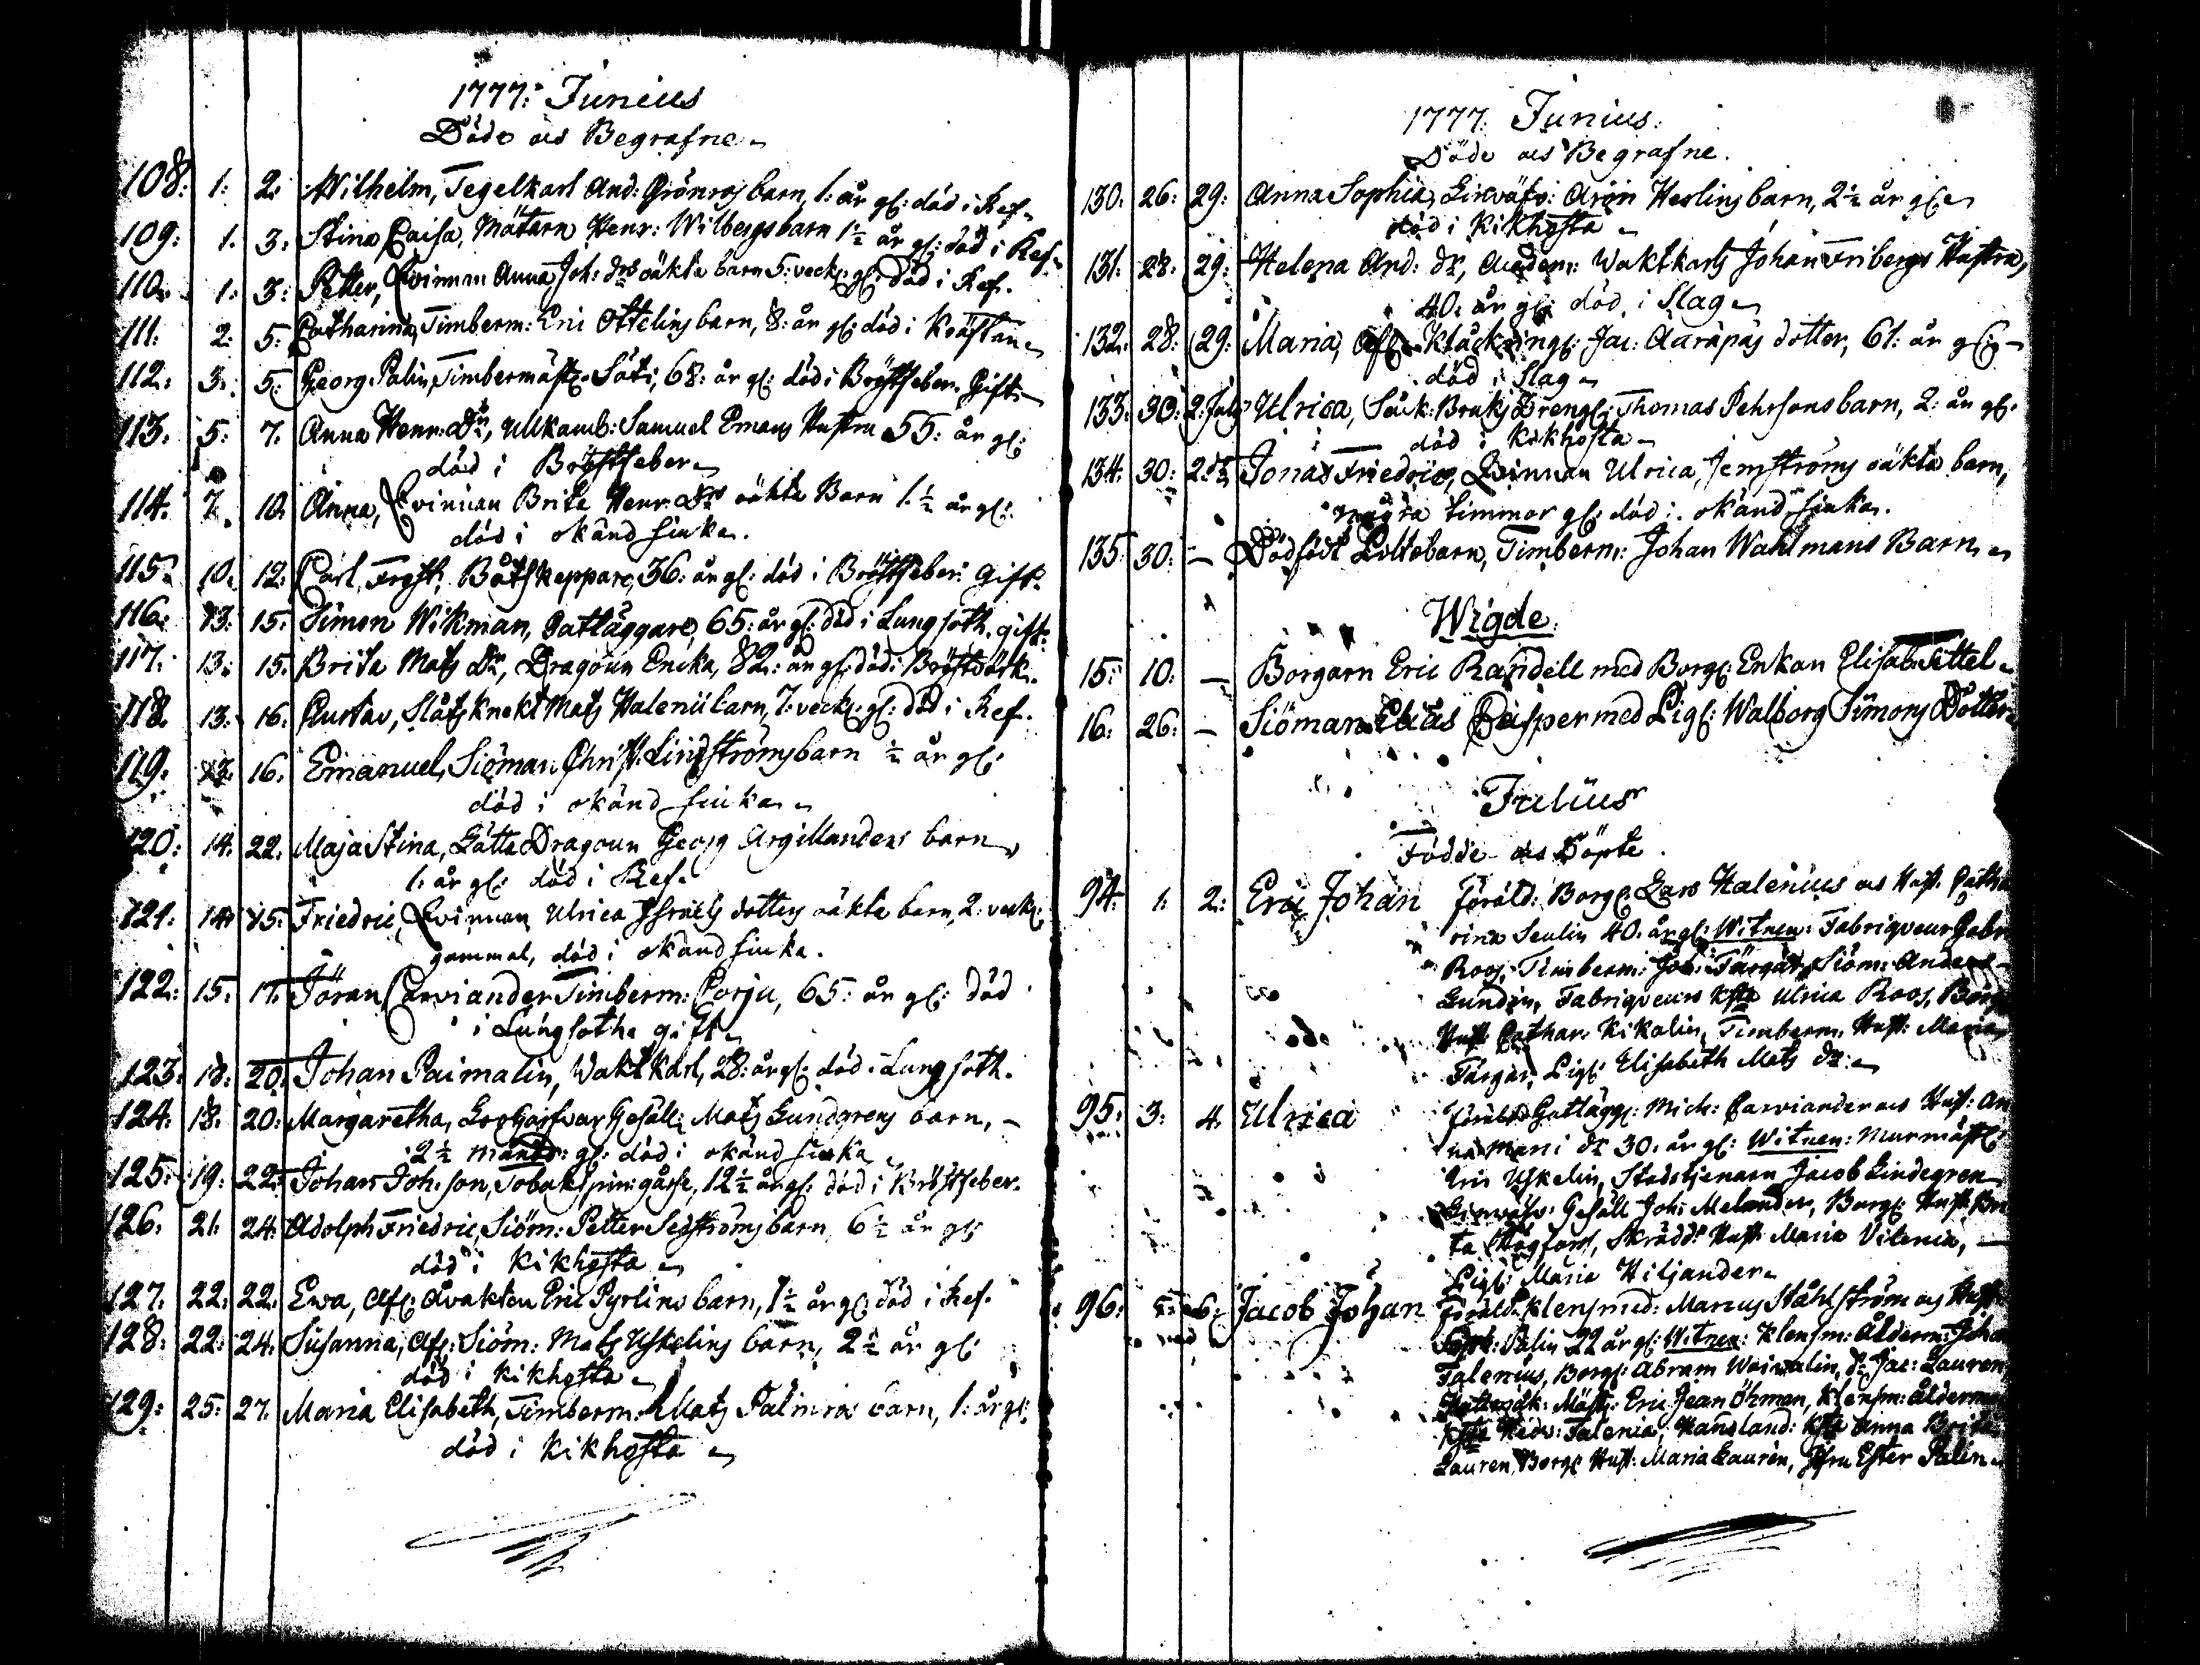 1777: Junius
Döde och Begrafne
108: 1: 2: Wilhelm, Tegelkarl And: Grönros barn, 1: år gl: död i Ref.
109: 1. 3: Stina Caisa, Mätarn Henr: Wilbergs barn 1½ år gl: död i Ref.
110. 1: 3: Petter, Qvinnan Anna Joh: drs oäkta barn 5: veck: gl: död i Ref.
111: 2: 5: Catharina, Timberm: Eric Ottelins barn, 8: år gl: död i Kräftan
112: 3. 5: Georg Palin, Timbermäst: Säti, 68: år gl: död i Bröstfeber. Gift
113. 5: 7. Anna Henr: Dr, Ullkamb: Samuel Emans Hustru 55: år gl:
död i Bröstfeber
114. 7. 10. Anna, Qvinnan Brita Henr. Drs oäkta Barn 1.½ år gl:
död i okänd siuka.
115. 10. 12: Carl Frost, Båtskeppare, 36: år gl: död i Bröstfeber. Gift.
116: 13: 15: Simon Wikman, Gatläggare, 65: år gl: död i Lungsoth. gift.
117. 13: 15. Brita Mats Dr, Dragoun Enka, 82: år gl: död i Bröstvärk.
118. 13: 16. Gustav, Slåtsknekt Mats Halenii barn, 7: veck: gl: död i Ref.
119. 13. 16. Emanuel, Siöman Christ. Lindströms barn ½ år gl:
död i okänd siuka
120: 14. 22. Maja Stina, Lätta Dragoun Georg Argillanders barn,
1: år gl: död i Ref.
121. 14. 15: Friedric, Qvinnan Ulrica Israels dotters oäkta barn, 2: veck:
gammal, död i okänd siuka.
122: 15. 17. Jöran Carviander Timberm: Corju, 65: år gl: död
i Lungsoth. gift
123: 18: 20. Johan Paimalin, Waktkarl, 28: år gl: död i Lungsoth.
124. 18. 20: Margaretha, Gesäll: Mats Lundgrens barn, –
2½ månad: gl: död i okänd siuka
125: 19: 22: Johan Joh: son, Tobakspin: gåsse, 12½ år gl: död i Bröstfeber.
126. 21. 24: Adolph Friedric, Siöm: Petter Sedströms barn 6½ år gl:
död i Kikhosta
127. 22: 22: Ewa, Afl: Åvakten Eric Pyrlins barn, 1½ år gl: död i Ref.
128: 22: 24. Susanna, Afl: Siöm: Mats Uskelins barn, 2½ år gl:
död i Kikhosta
129: 25: 27. Maria Elisabeth, Timberm: Mats Palmros barn, 1: år gl:
död i Kikhosta
1777. Junius:
Döde och Begrafne.
130. 26: 29: Anna Sophia, Linväfv: Aron Heslins barn, 2½ år gl:
död i Kikhosta
131: 28: 29: Helena And: dr, Academ: Waktkarls Johan Fribergs Hustru,
40: år gl: död i Slag
132. 28: 29: Maria, Afl: Klåckring: Jac: Aarapas dotter, 61: år gl: –
död i Slag
133: 30: 2: July Ulrica, Säck: Bruks Dreng: Thomas Pehrsons barn, 2: år gl:
död i Kikhosta
134. 30: 2: do Jonas Friedric, Qvinnan Ulrica, Jernströms oäkta barn,
några timmar gl: död i okänd siuka.
135 30: – Dödfödt Goltebarn, Timberm: Johan Wahlmans Barn
Wigde:
15: 10: – Borgarn Eric Randell med Borg: Enkan Elisab: Tettel
16. 26: – Siöman Elias Caisper med Pig: Walborg Simons Dotter
Julius
Födde och Döpte
94. 1. 2: Eric Johan Föräld: Borg: Lars Halenius och Hust. Catha
rina Seulin 40. år gl: Witnen: Fabriqveur Gabr
Roos, Timberm: Joh: Färgar, Siöm: Anders
Lundin, Fabriqveurs Ulrica Roos, Borg
Hust: Cathar. Kikalin, Timberm. Hust: Maria
Färgar, Pig: Elisabeth Mats Dr
95: 3: 4. Ulrica Föräld Gatlägg: Mich: Carviander och Hust: An
na Mari dr 30. år gl: Witnen: Murmäst:
Eric Uskelin, Stadstjenarn Jacob Lindegren
Linväfv: Gesäll Joh: Melander, Borg: Hust: Bri
ta Högfors, Skrädd: Hust: Maria Vilenia, –
Pig: Maria Hiljander
96: 5: 6: Jacob Johan Föräld: Klensmed: Marcus Ståhlström och Hust
Palin 22 år gl: Witnen: Klensm: Ålderm: Joha
Falenius, Borg: Abram Waivalin, do Jac: Lauren,
Mäst: Eric Jean Öhman, Klensm: Ålderman
Hedv: Falenia, Hansland: Anna Brita
Lauren, Borg: Hust: Maria Lauren, Jfru Ester Palin